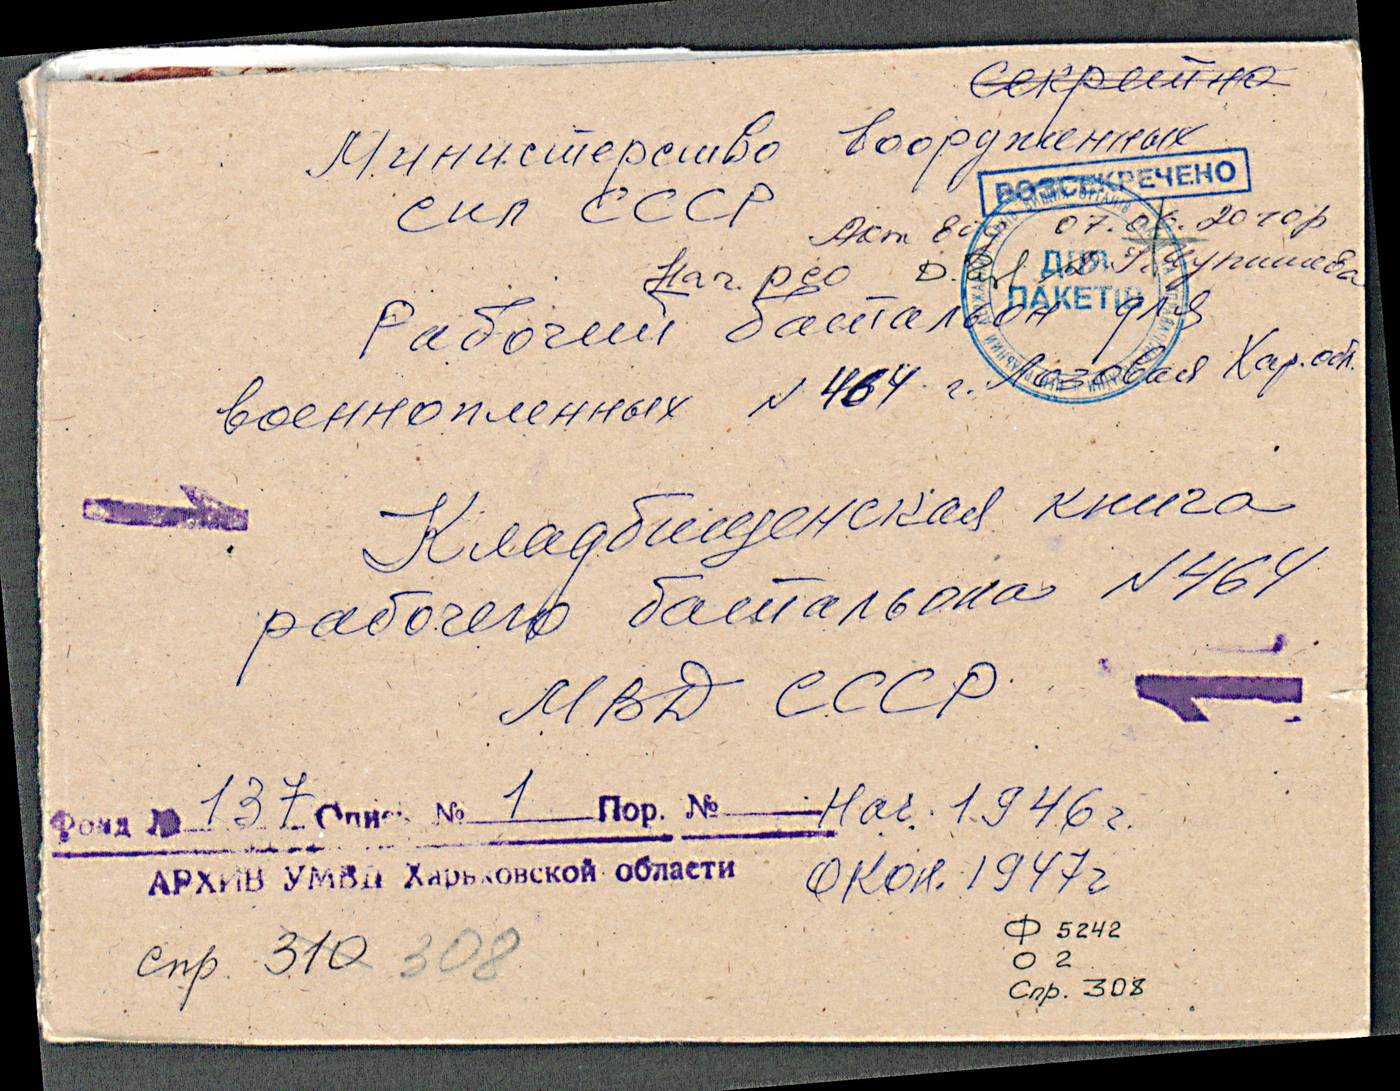 Секретно
Министерство вооруженных
сил СССР
РОЗСЕКРЕЧЕНО
Акт 07.06.2010р
Нач. рсо
ДЛЯ
ПАКЕТІВ
Рабочий батальон для
военнопленных N 464 г. Лозовая Хар. обл.
Кладбищенская книга
рабочего батальона N 464
МВД СССР
Фонд № 137 Опись № 1 Пор. №
Нач. 1946 г.
АРХИВ УМВД Харьковской области
Окон. 1947 г
Спр. 310 308
Ф 5242
О 2
Спр. 308